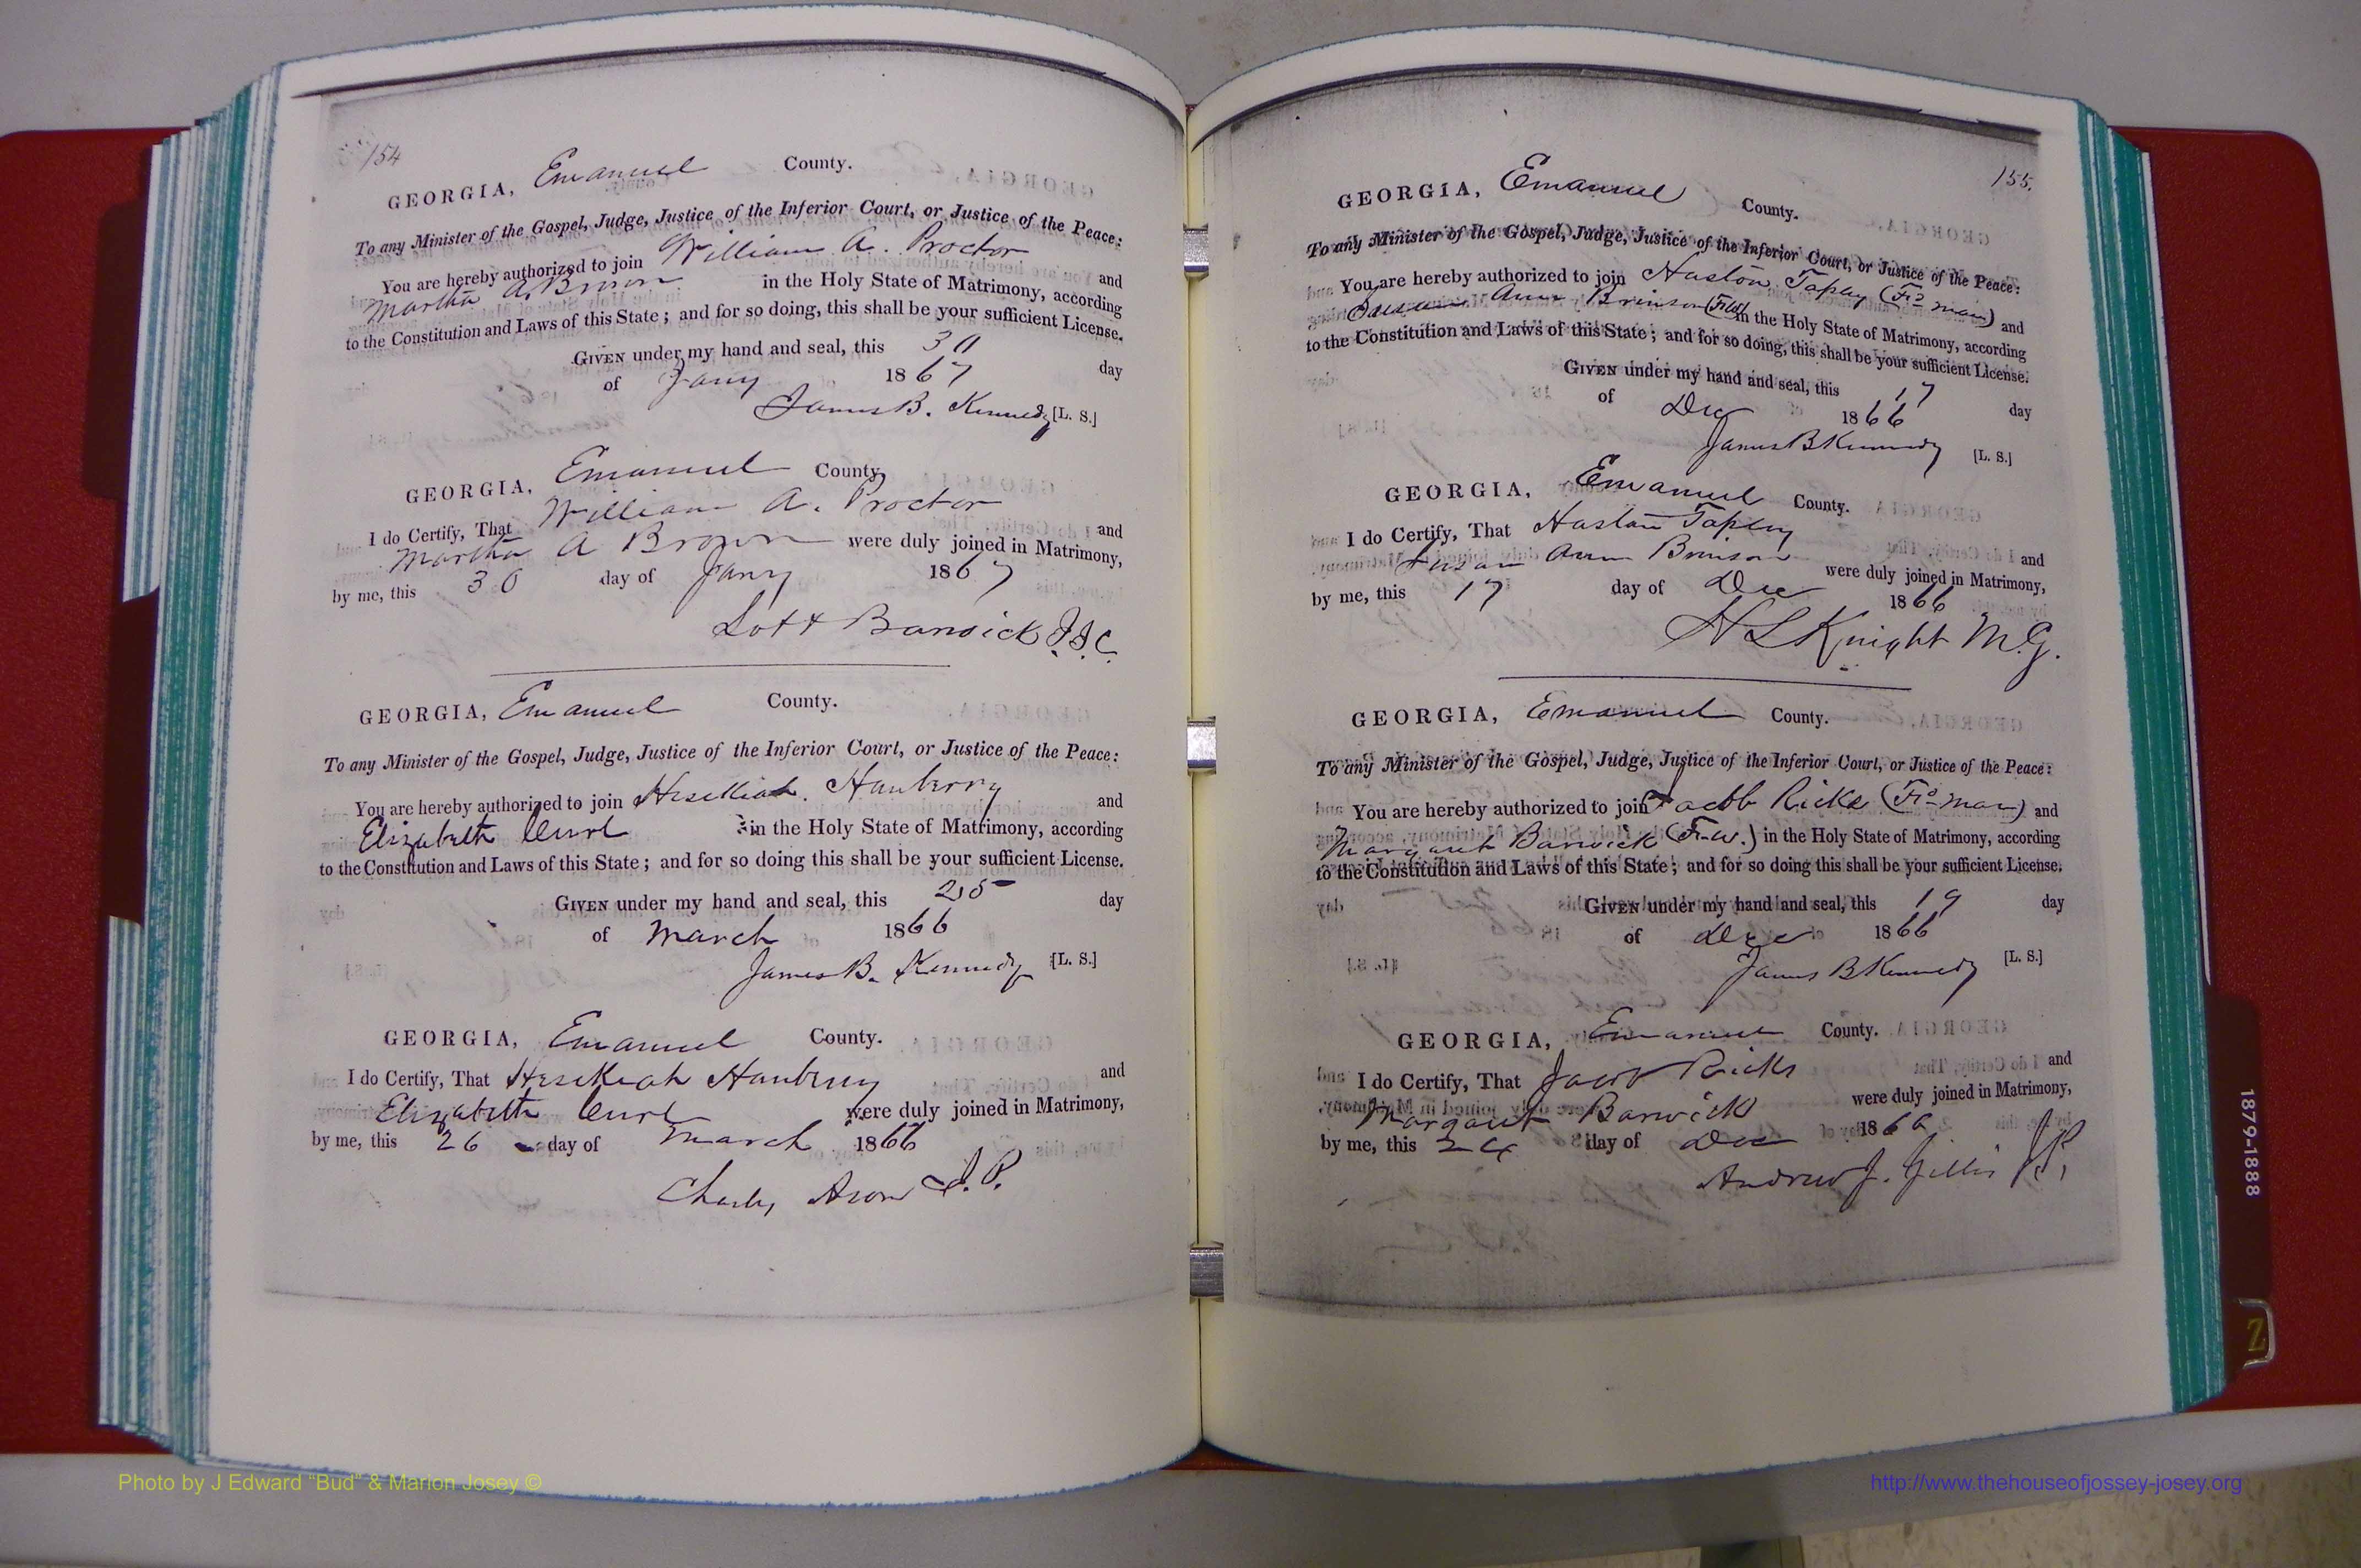 154
GEORGIA, Emanuel County.
To any Minister of the Gospel, Judge, Justice of the Inferior Court, or Justice of the Peace:
You are hereby authorized to join William A. Proctor and
Martha A. Brown in the Holy State of Matrimony, according
to the Constitution and Laws of this State; and for so doing, this shall be your sufficient License.
GIVEN under my hand and seal, this 30 day
of Jany 1867
James B. Kennedy [L. S.]
GEORGIA, Emanuel County
I do Certify, That William A. Proctor and
Martha A Brown were duly joined in Matrimony,
by me, this 30 day of Jany 1867
Lott Barwick J.I.C.
GEORGIA, Emanuel County.
To any Minister of the Gospel, Judge, Justice of the Inferior Court, or Justice of the Peace:
You are hereby authorized to join Hesekiah Hanberry and
Elizabeth Curl in the Holy State of Matrimony, according
to the Constitution and Laws of this State; and for so doing this shall be your sufficient License.
GIVEN under my hand and seal, this 25 day
of March 1866
James B. Kennedy [L. S.]
GEORGIA, Emanuel County.
I do Certify, That Hesekiah Hanberry and
Elizabeth Curl were duly joined in Matrimony,
by me, this 26 day of March 1866
J.P.
155.
GEORGIA, Emanuel County.
To any Minister of the Gospel, Judge, Justice of the Inferior Court, or Justice of the Peace:
You are hereby authorized to join Haston Tapley (Fr man) and
Susan Ann Brinson in the Holy State of Matrimony, according
to the Constitution and Laws of this State; and for so doing, this shall be your sufficient License.
GIVEN under my hand and seal, this 17 day
of Dec 1866
James B Kennedy [L. S.]
GEORGIA, Emanuel County.
I do Certify, That Haston Tapley and
Susan Ann Brinson were duly joined in Matrimony,
by me, this 17 day of Dec 1866
H L Knight M.G.
GEORGIA, Emanuel County.
To any Minister of the Gospel, Judge, Justice of the Inferior Court, or Justice of the Peace:
You are hereby authorized to join Jacob Ricks (Fr man) and
Margaret Barwick (F.w.) in the Holy State of Matrimony, according
to the Constitution and Laws of this State; and for so doing this shall be your sufficient License.
GIVEN under my hand and seal, this 19 day
of Dec 1866
James B Kennedy [L. S.]
GEORGIA, Emanuel County.
I do Certify, That Jacob Ricks and
Margaret Barwick were duly joined in Matrimony,
by me, this day of Dec 1866
Andrew J. Gillis J.P.
1879-1888
Z
Photo by J Edward "Bud" & Marion Josey ©
http://www.thehouseofjossey-josey.org